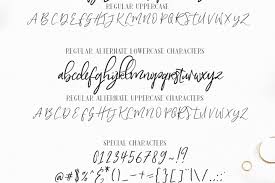 REGULAR UPPERCASE
ABCDEFGHIJKLMNOPQRSTUVWXYZ
REGULAR ALTERNATE LOWERCASE CHARACTERS
abcdefghijklmnopqrstuvwxyz
REGULAR ALTERNATE UPPERCASE CHARACTERS
ABCDEFGHIJKLMNOPQRSTUVWXYZ
SPECIAL CHARACTERS
0123456789-!?